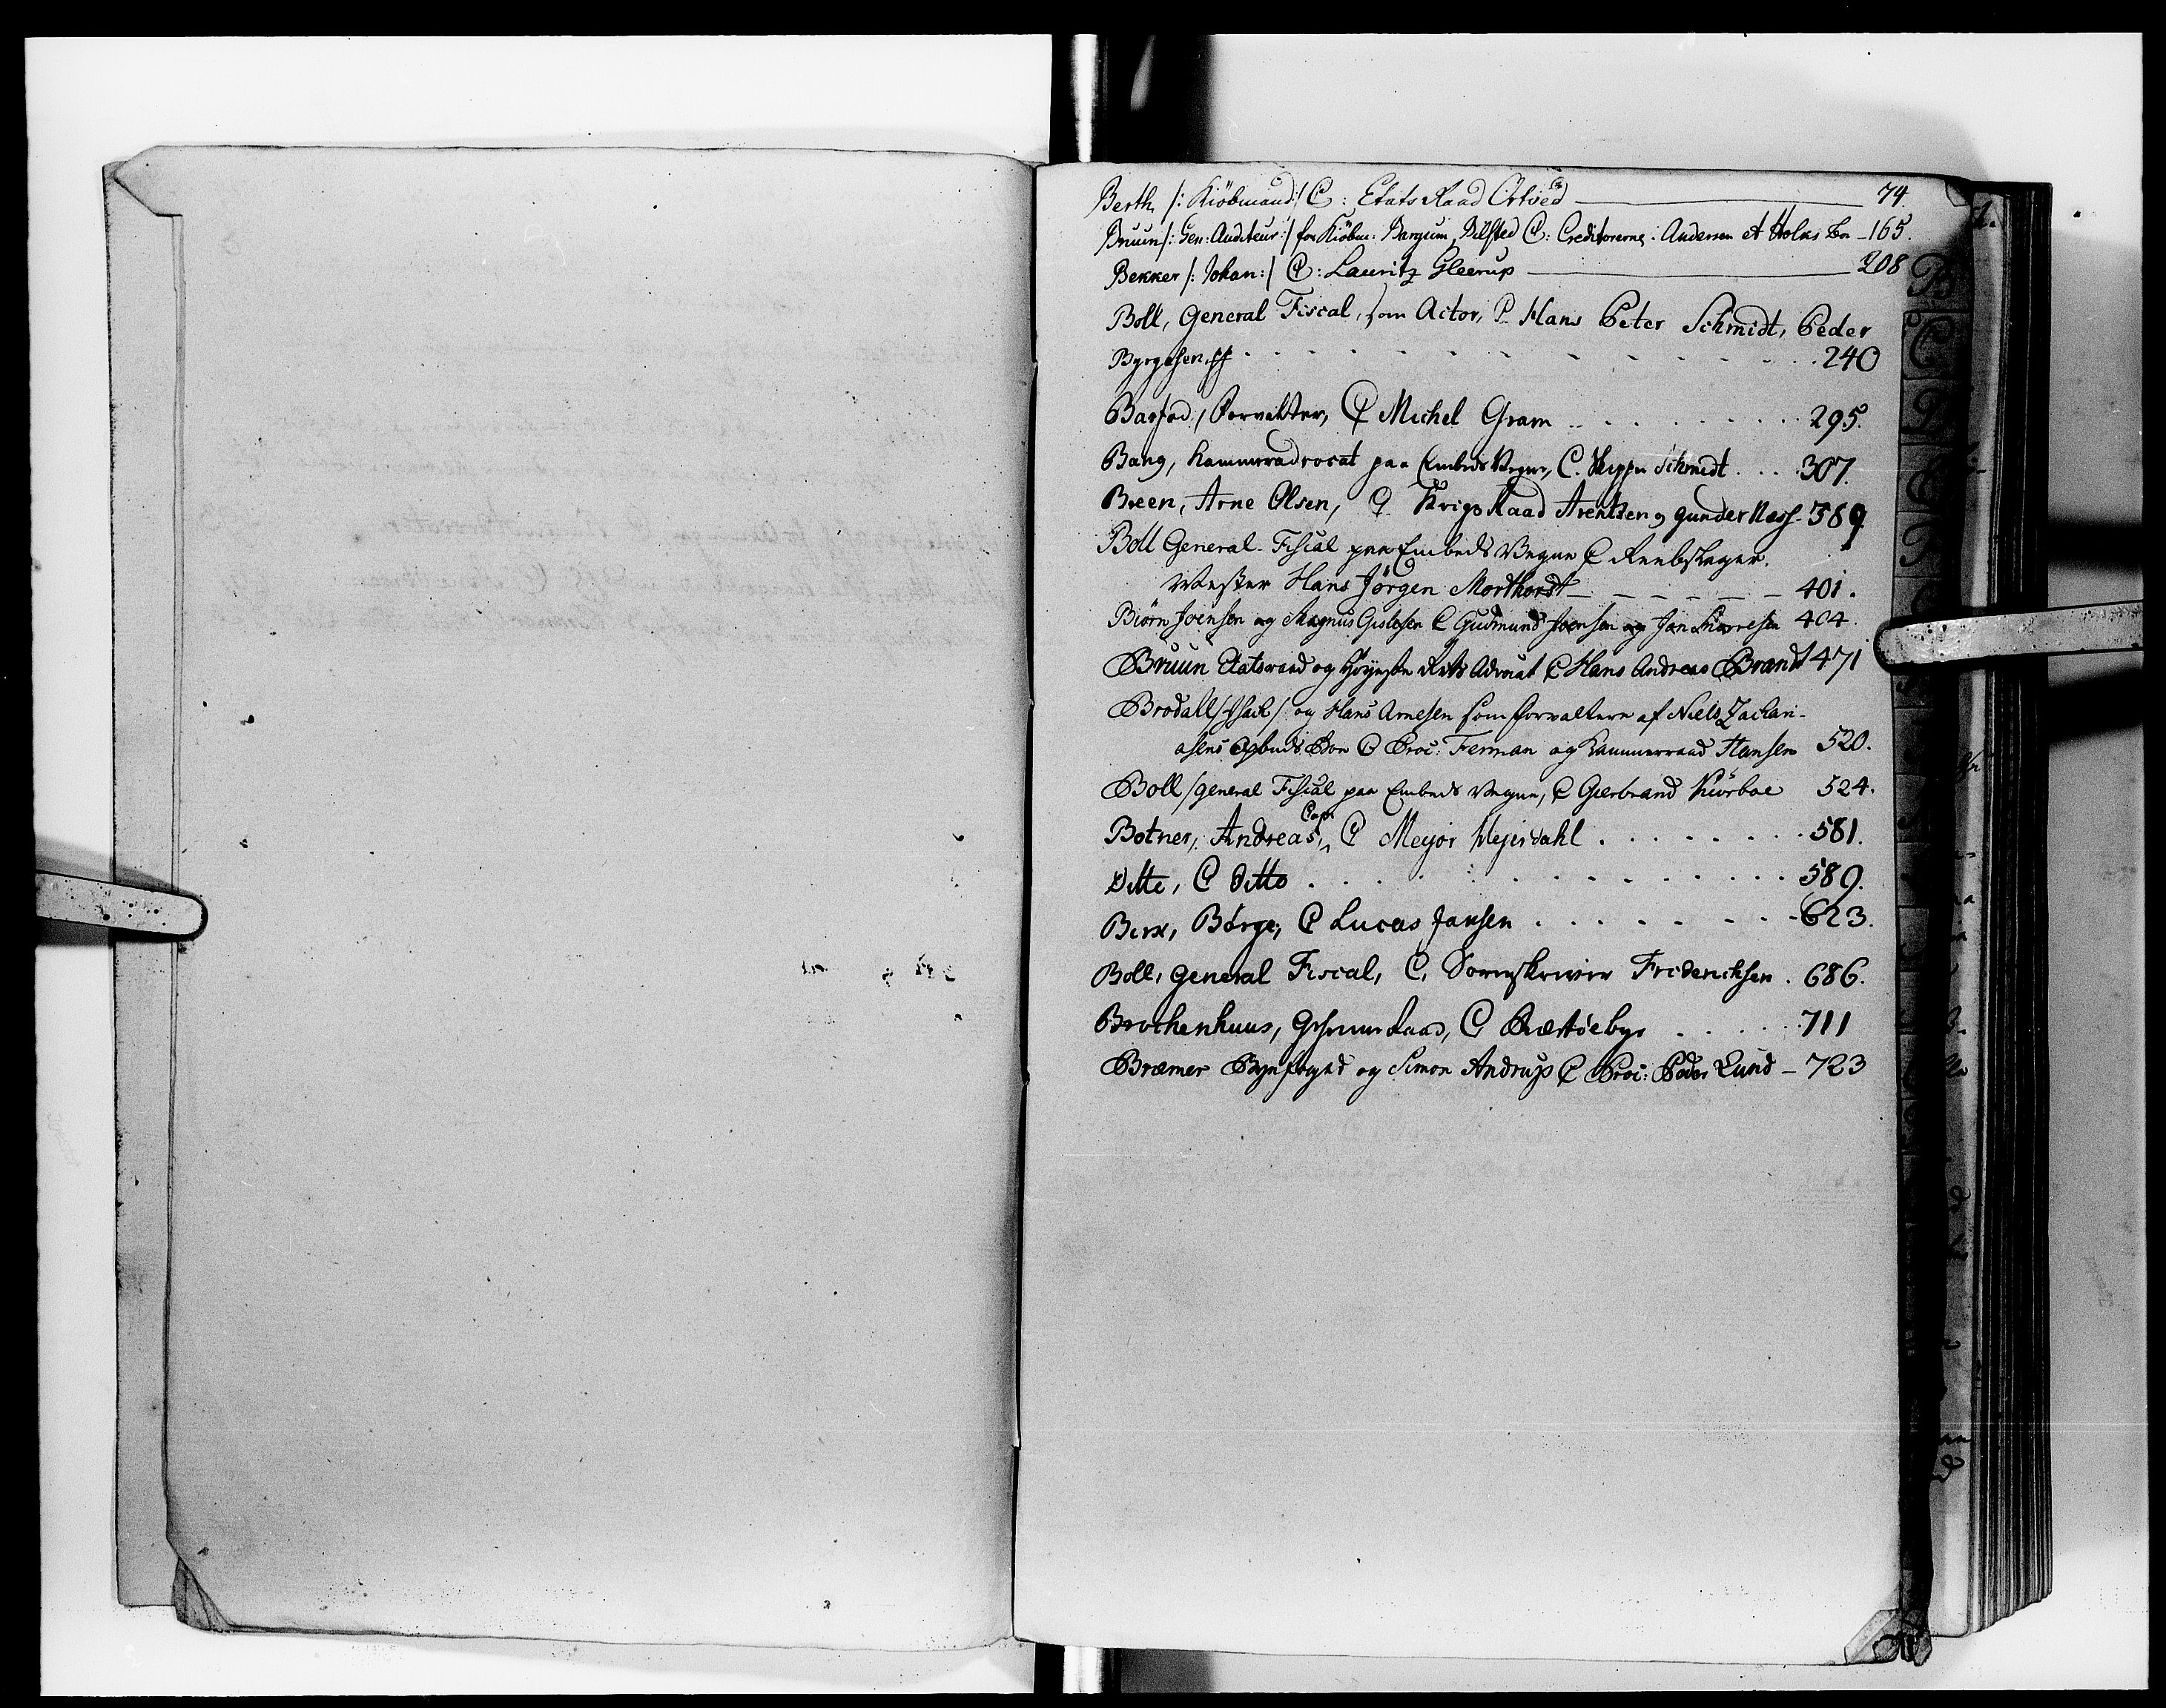 Berth /: Kiöbmand :/ C: Etats Raad Ortved 74
Bruun /: Gen: Auditeur :/ for Kiöbm: Bargum, Dilsted C: Creditorerne. Andersen et Holms Bo 165.
Bekker /: Johan :/ C: Lauritz Gleerup 208
Boll, General Fiscal, som Actor, C Hans Peter Schmidt, Peder
Byrgesen 240
Barfod, Forvalter, C Michel Gram 295.
Bang, Kammeradvocat paa Embeds Vegne, C. Schmidt 307.
Breen, Arne Olsen, C. Krigs Raad Arentzen og Gunder Næss 389
Boll General Fiscal paa Embeds Vegne C Reebslager
Mester Hans Jörgen Morthorst 401.
Biörn Joensen og Magnus Gislesen C Gudmund Joensen og Jon 404.
Bruun Etatsraad og Höyeste Rets Advocat C Hans Andreas Brandt 471
Brodall / Isach / og Hans Arnesen som Forvaltere af Niels Zachari-
asens Opbuds Boe C Proc: Ferman og Kammerraad Hansen 520.
Boll / General Fiscal paa Embeds Vegne, C Gierbrand Kiörboe 524.
Botner, Andreas, Capt C Mejor Mejerdahl 581.
Ditto, C Ditto 589.
Birx, Börge, C Lucas Jansen 623.
Boll, General Fiscal, C, Sorenskriver Friderichsen 686.
Brochenhuus, Raad, C Præstöebye 711
Bræmer Byefoged og Simon Andrup C Proc: Peder Lund 723
B
C